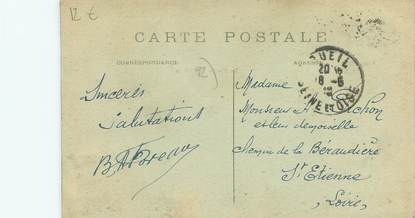 12 €
CARTE POSTALE
CORRESPONDANCE
12
Sincères
Salutations
Madame
Monsieur
et leur demoiselle
Chemin de la Béraudière
St Etienne
Loire
UEIL
20
8-6
SEINE ET OISE